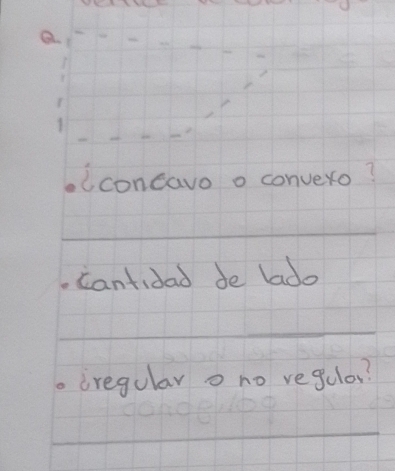 a
• ¿concavo o convexo?
• cantidad de lado
• ¿regular o no regular?